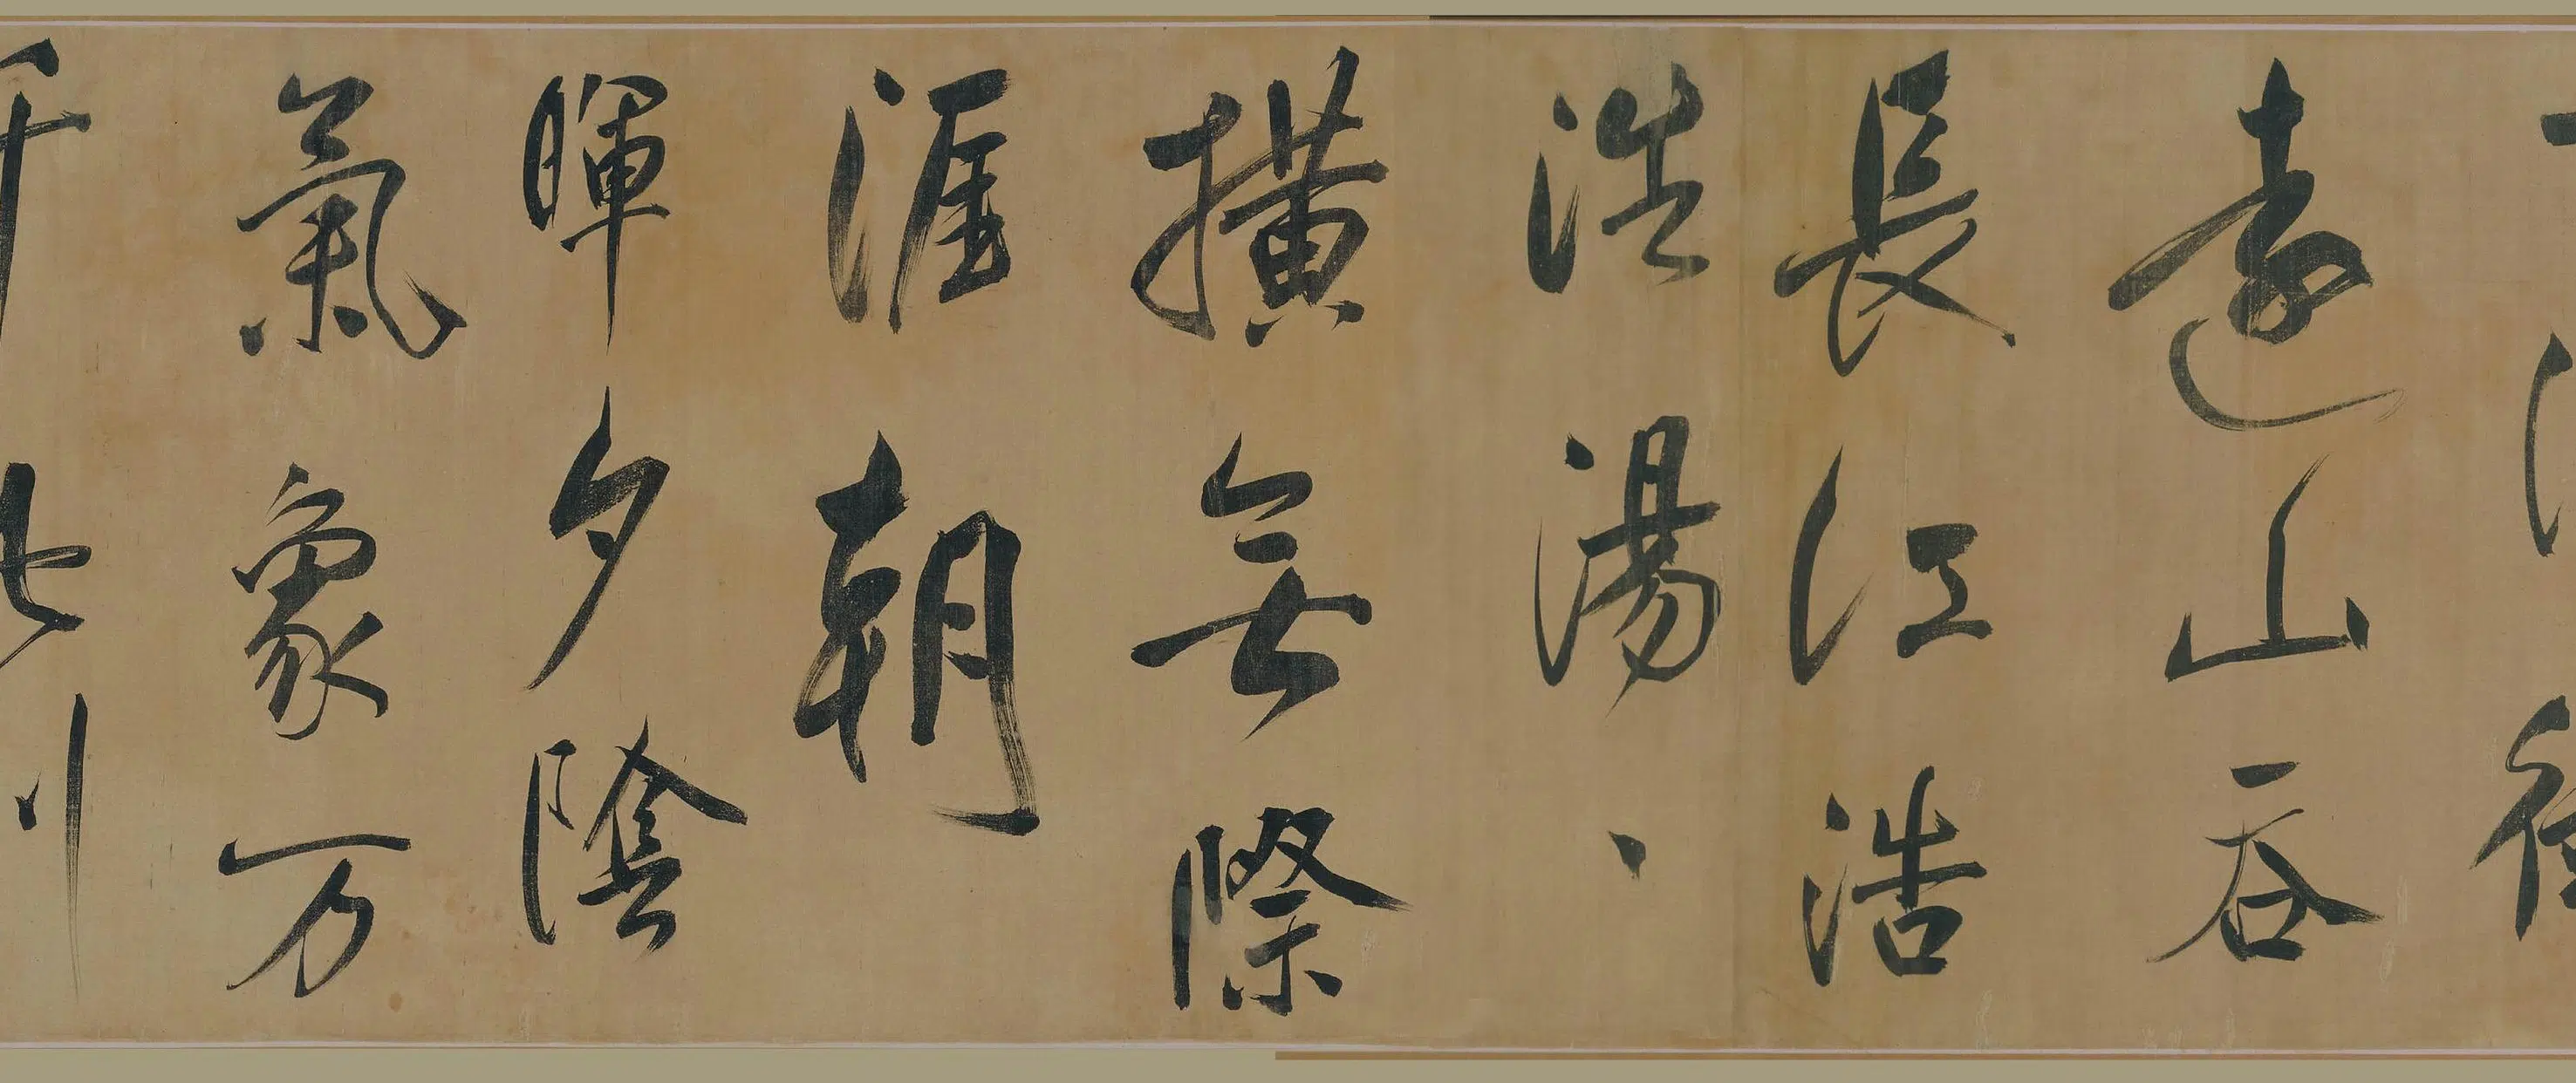 遠山吞
長江浩
浩湯、
橫無際
涯朝
暉夕陰
氣象万